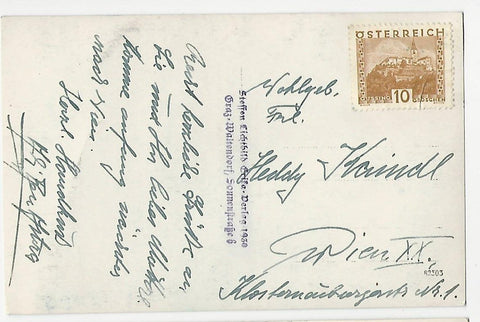 Recht herzliche Grüße an
Sie und Ihr liebe Mutter.
Komme anfang nächster
nach Wien.
Herzl. Handkuß
Steffen Lichtbild
Verlag 1930
Graz-Waltendorf, Sonnenstraße 6
ÖSTERREICH
10
GROSCHEN
Wohlgeb.
Frl.
Heddy Kaindl
Wien XX.
Klosterneuburgerstr. Nr. 1.